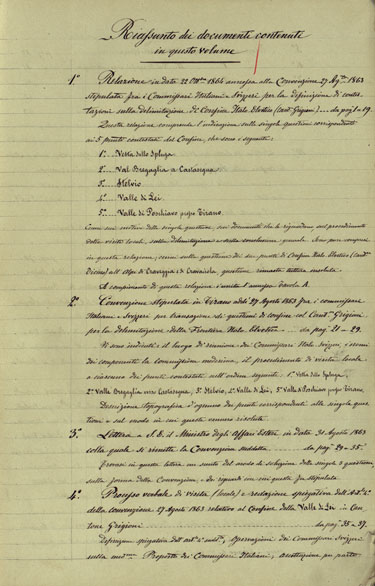 Riassunto dei documenti contenuti
in questo volume
1° Relazione in data 22 Ott.bre 1864 annessa alla Convenzione 27 Ag.to 1863
stipulata fra i Commissari Italiani e Svizzeri per la definizione di conte-
stazioni sulla delimitazione di Confine Italo Elvetico (Cant. Grigioni) ... da pag. 1 a 19.
Questa relazione comprende l'indicazione sulle singole questioni corrispondenti
ai 5 punti contestati del Confine, che sono i seguenti
1° Vetta dello Spluga
2° Val Bregaglia a Castasegna
3° Stelvio
4° Valle di Lei
5° Valle di Poschiavo presso Tirano
Cenni sui motivi delle singole questioni, sui documenti che le riguardano sul procedimento
delle visite locali, sulla delimitazione e sulla conclusione generale. Sono pure compresi
in questa relazione, cenni sulla questione dei due punti di Confine Italo Elvetico (Cant.
Ticino) all' Alpe di Cravairola questione rimasta tuttora insoluta.
A compimento di questa relazione è unito l'annesso tavola A.
2° Convenzione stipulata in Tirano addì 27 Agosto 1863 fra i commissari
Italiani e Svizzeri per transazione di questioni di confine col Cant.e Grigioni
per la delimitazione della Frontiera Italo Elvetica ... da pag. 21 - 29.
Vi sono indicati il luogo di riunione dei Commissari Italo Svizzeri, i nomi
dei componenti la commissione medesima, il procedimento di visita locale
a ciascuno dei punti contestati nell'ordine seguente. 1° Vetta dello Spluga,
2° Valle Bregaglia verso Castasegna, 3° Stelvio, 4° Valle di Lei, 5° Valle di Poschiavo presso Tirano
Descrizione topografica d'ognuno dei punti corrispondenti alle singole ques-
tioni e sul modo in cui queste vennero risolute.
3° Lettera a S. E. il Ministro degli Affari Esteri in data 31 Agosto 1863
colla quale si rimette la Convenzione suddetta ... da pag. 29 - 35.
Trovasi in questa lettera un sunto del modo di soluzione delle singole 5 questioni,
sulla forma della Convenzione e dei riguardi con cui questa fu stipulata
4° Processo verbale di visita (locale) e redazione spiegativa dell'Art. 4°
della convenzione 27 Agosto 1863 relativo al Confine della Valle di Lei in Can-
tone Grigioni ... da pag. 35 - 37.
spiegativa dell'art. 4° sudd.°, Operazioni dei Commissari Svizzeri
sulla med.ma Proposta dei Commissari Italiani, accettazione per parte